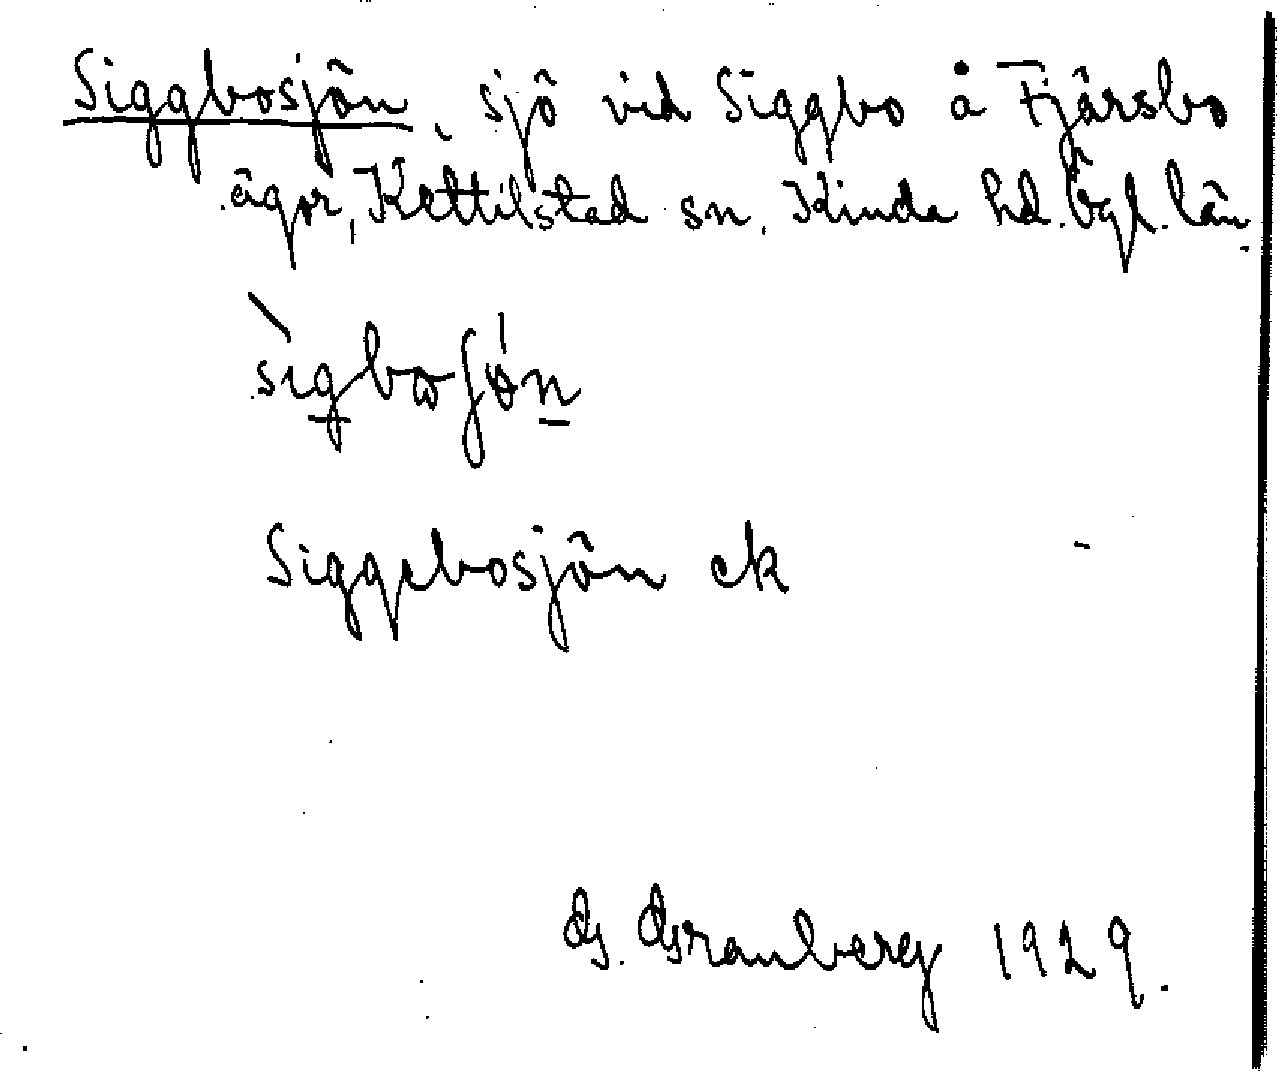 Siggbosjön, sjö vid Siggbo å Fjärsbo
ägor, Kettilstad sn, Kinda hd. Ögl. län.
Siggebosjön ek
G. Granberg 1929.